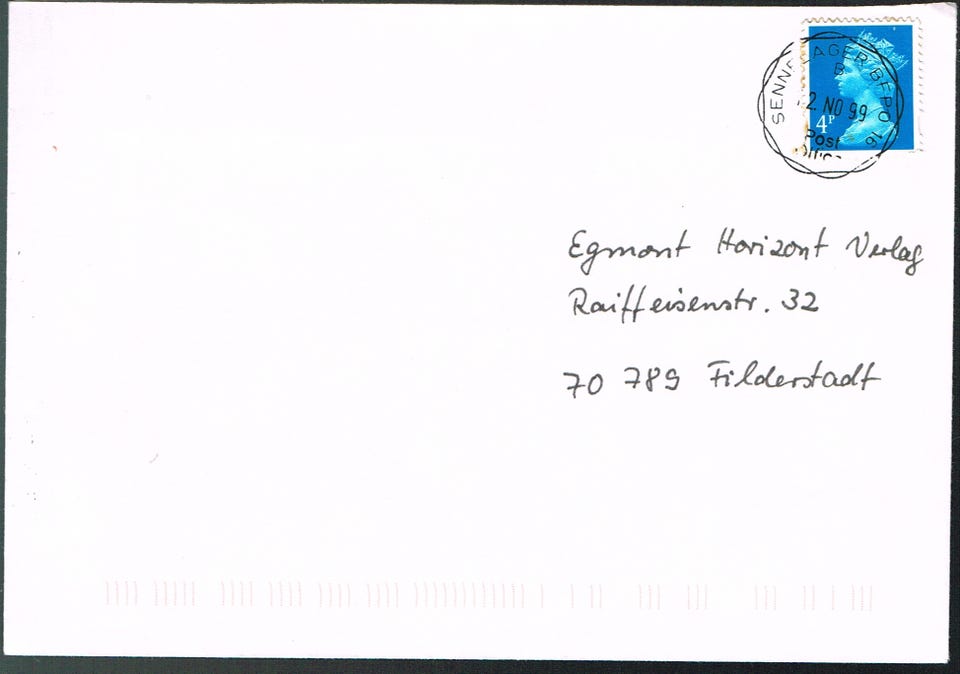 SENNELAGER BFPO 16
B
2. NO 99
Post
Office
4P
Egmont Horizont Verlag
Raiffeisenstr. 32
70 789 Filderstadt